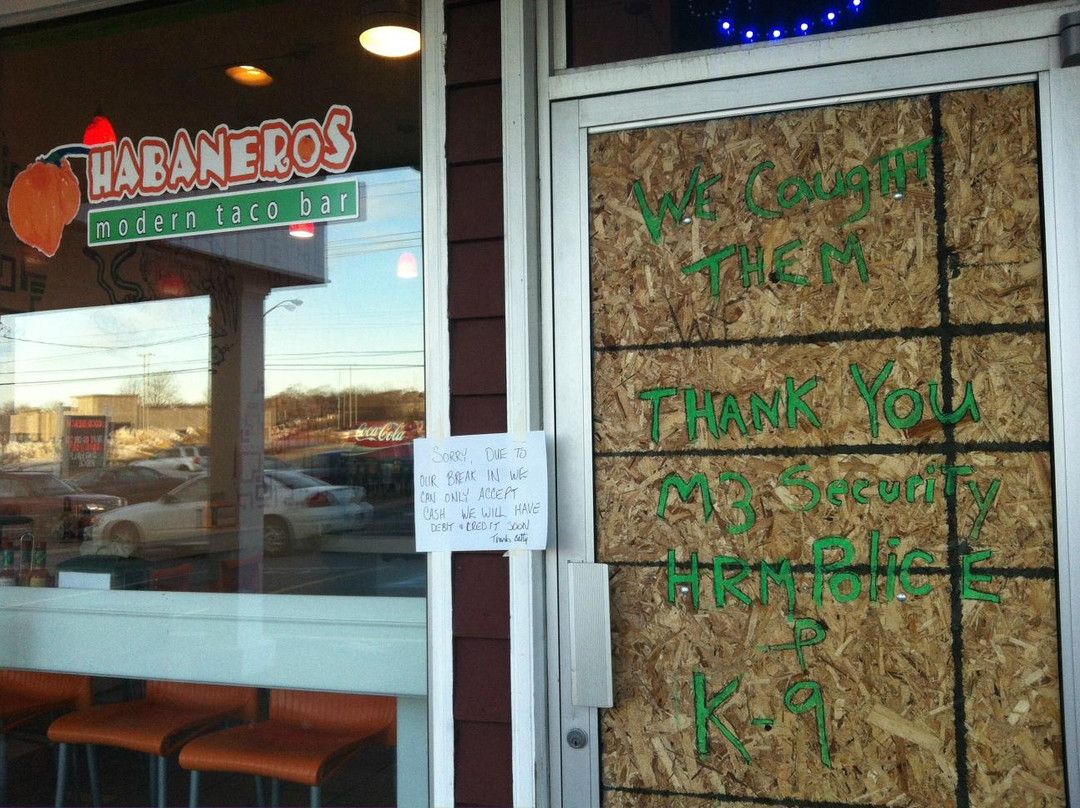 HABANEROS
modern taco bar
Coca Cola
SORRY, DUE TO
OUR BREAK IN WE
CAN ONLY ACCEPT
CASH WE WILL HAVE
DEBIT & CREDIT SOON
We CaughT
THEM
THANK You
M3 SecuriTy
HRM PolicE
P
K-9